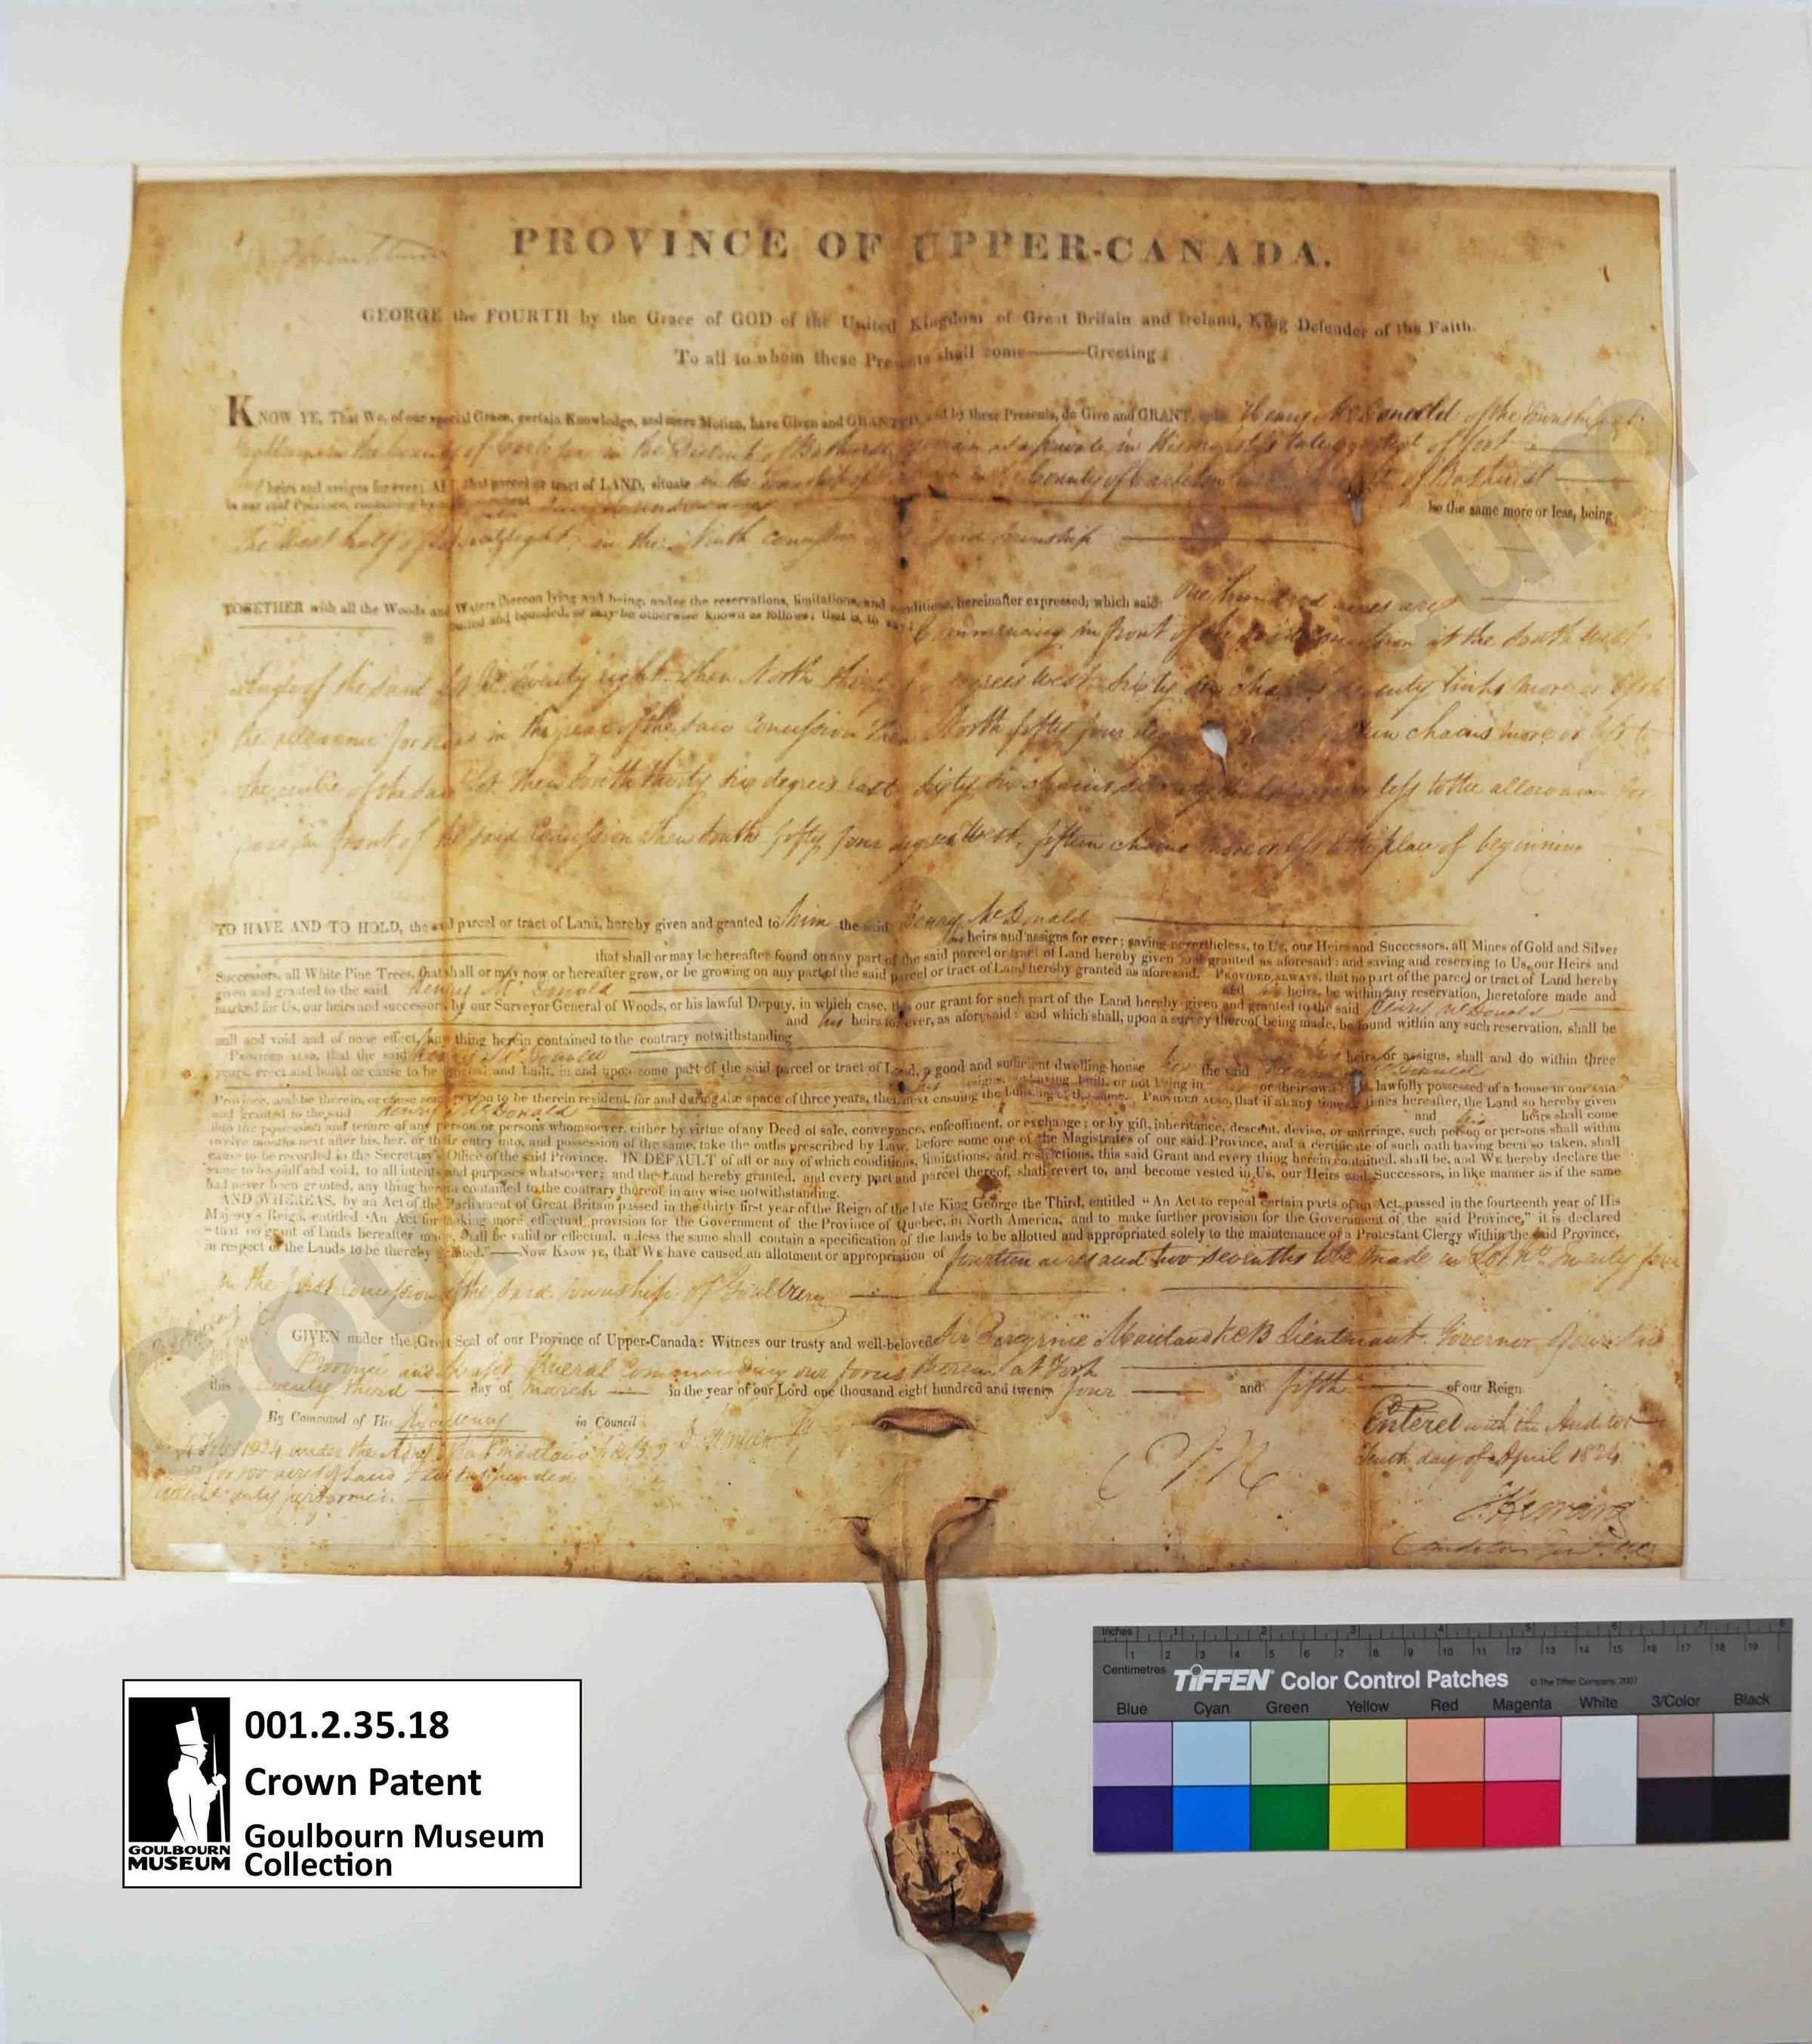 PROVINCE OF UPPER-CANADA.
GEORGE the FOURTH by the Grace of GOD of the United Kingdom of Great Britain and Ireland, King Defender of the Faith.
To all to whom these Presents shall come——Greeting:
KNOW YE, That We, of our special Grace, certain Knowledge, and mere Motion, have Given and GRANTED, and by these Presents, do Give and GRANT, unto Henry McDonald of the Township of
in the County of Carleton in the District of Bathurst, as a private in His Majesty's late Regiment of foot
heirs and assigns for ever; ALL that parcel or tract of LAND, situate in the Township of in the County of Carleton of Bathurst
in our said Province, containing by
be the same more or less, being
The West half of in the Ninth Concession said Township
TOGETHER with all the Woods and Waters thereon lying and being, under the reservations, limitations, and conditions, hereinafter expressed; which said One hundred acres are
butted and bounded, or may be otherwise known as follows; that is, to say: Commencing in front of the said Concession at the South West
Angle of the said Lot No. Twenty eight then North thirty degrees West sixty six chains seventy links more or less to
the allowance for road in the rear of the said Concession Then North fifty four degrees chains more or less to
the centre of the said Lot, Then South thirty six degrees East sixty six chains less to the allowance for
road in front of the said Concession then South fifty four degrees West, fifteen chains more or less to the place of beginning
TO HAVE AND TO HOLD, the said parcel or tract of Land, hereby given and granted to him the said Henry McDonald
his heirs and assigns for ever; saving nevertheless, to Us, our Heirs and Successors, all Mines of Gold and Silver
that shall or may be hereafter found on any part of the said parcel or tract of Land hereby given and granted as aforesaid: and saving and reserving to Us, our Heirs and
Successors, all White Pine Trees, that shall or may now or hereafter grow, or be growing on any part of the said parcel or tract of Land hereby granted as aforesaid. PROVIDED ALWAYS, that no part of the parcel or tract of Land hereby
given and granted to the said Henry McDonald and his heirs, be within any reservation, heretofore made and
marked for Us, our heirs and successors by our Surveyor General of Woods, or his lawful Deputy, in which case, this our grant for such part of the Land hereby given and granted to the said Henry McDonald
and his heirs for ever, as aforesaid: and which shall, upon a survey thereof being made, be found within any such reservation, shall be
null and void and of none effect, any thing herein contained to the contrary notwithstanding
PROVIDED ALSO, that the said Henry McDonald his heirs or assigns, shall and do within three
years, erect and build or cause to be erected and built, in and upon some part of the said parcel or tract of Land, a good and sufficient dwelling house the said Henry McDonald
his assigns, not having built, or not being in his or their own right lawfully possessed of a house in our said
Province, and be therein, or cause some person to be therein resident, for and during the space of three years, then next ensuing the building of the same. PROVIDED ALSO, that if at any time or times hereafter, the Land so hereby given
and granted to the said Henry McDonald and his heirs shall come
into the possession and tenure of any person or persons whomsoever, either by virtue of any Deed of sale, conveyance, enfeoffment, or exchange; or by gift, inheritance, descent, devise, or marriage, such person or persons shall within
twelve months next after his, her, or their entry into, and possession of the same, take the oaths prescribed by Law, before some one of the Magistrates of our said Province, and a certificate of such oath having been so taken, shall
cause to be recorded in the Secretary's Office of the said Province. IN DEFAULT of all or any of which conditions, limitations, and restrictions, this said Grant and every thing herein contained, shall be, and We hereby declare the
same to be null and void, to all intents and purposes whatsoever; and the Land hereby granted, and every part and parcel thereof, shall revert to, and become vested in Us, our Heirs and Successors, in like manner as if the same
had never been granted, any thing herein contained to the contrary thereof in any wise notwithstanding.
AND WHEREAS, by an Act of the Parliament of Great Britain passed in the thirty first year of the Reign of the late King George the Third, entitled "An Act to repeal certain parts of an Act, passed in the fourteenth year of His
Majesty's Reign, entitled 'An Act for making more effectual provision for the Government of the Province of Quebec, in North America, and to make further provision for the Government of the said Province," it is declared
"that no grant of lands hereafter made, shall be valid or effectual, unless the same shall contain a specification of the lands to be allotted and appropriated solely to the maintenance of a Protestant Clergy within the said Province,
in respect of the Lands to be thereby granted."——Now KNOW YE, that WE have caused an allotment or appropriation of fourteen acres and two sevenths to be made in Lot No. Twenty four
in the first Concession of the said Township of Goulburn
GIVEN under the Great Seal of our Province of Upper-Canada: Witness our trusty and well-beloved Sir Peregrine Maitland K.C.B Lieutenant Governor of our said
Province and Major General Commanding our forces therein at York
this twenty third day of March in the year of our Lord one thousand eight hundred and twenty four and fifth of our Reign.
By Command of His Excellency in Council
1824 under the Maitland
for 100 acres of Land
duty performed.
PM
Entered with the Auditor
Tenth day of April 1824
S Heward
Auditor Genl
Goulbourn Museum
001.2.35.18
Crown Patent
Goulbourn Museum
Collection
GOULBOURN
MUSEUM
Inches 1 2 3 4 5 6 7 8
1 2 3 4 5 6 7 8 9 10 11 12 13 14 15 16 17 18 19
Centimetres
TIFFEN® Color Control Patches © The Tiffen Company, 2007
Blue Cyan Green Yellow Red Magenta White 3/Color Black